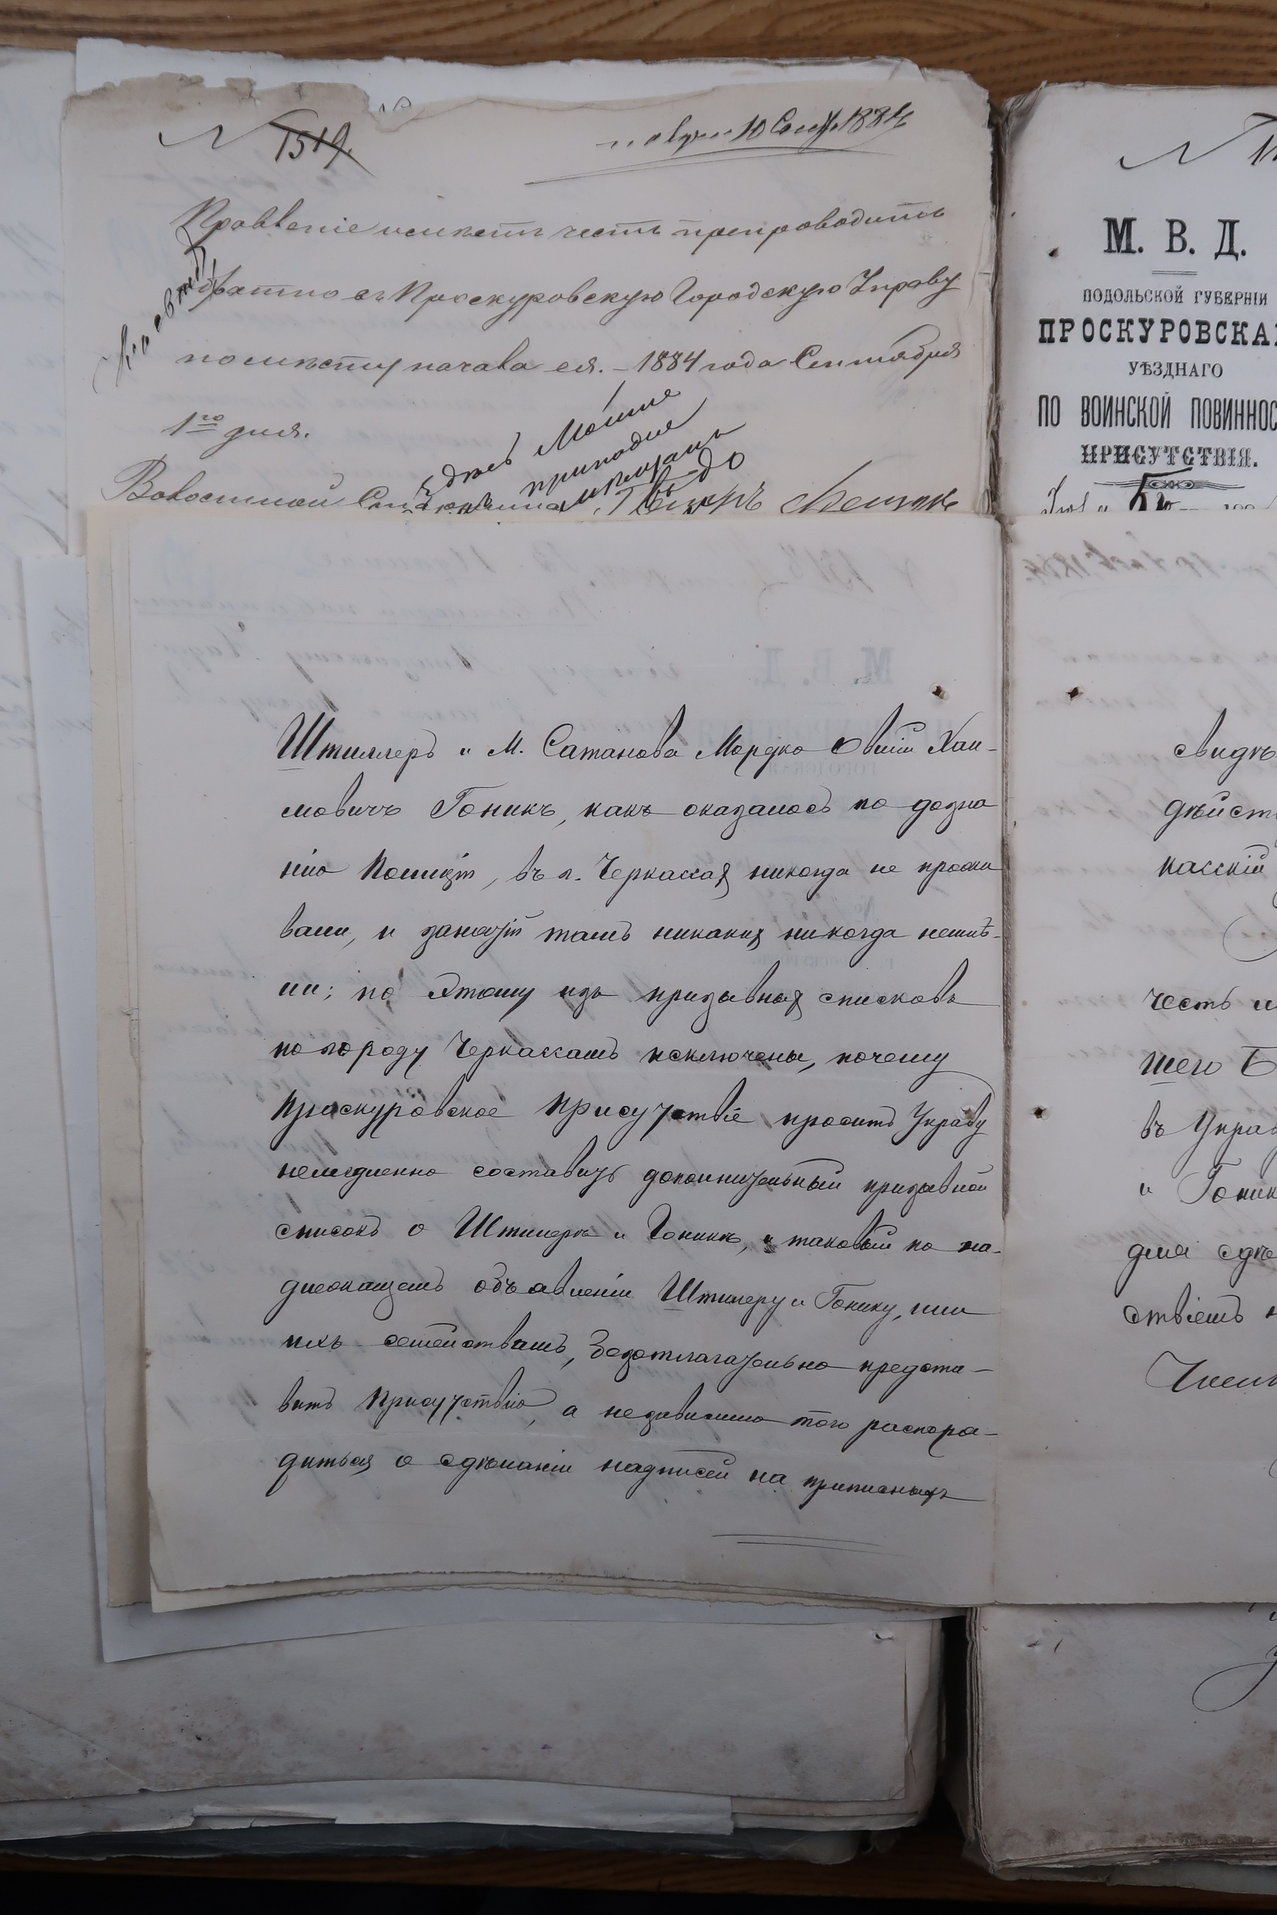 N 1519.
получ. 10 Сент. 1884
Правленіе имѣетъ честь препроводить
обратно въ Проскуровскую Городскую Управу
по мѣсту начала ея. – 1884 года Сентября
1го дня.
Волостной Старшина
N
М. В. Д.
ПОДОЛЬСКОЙ ГУБЕРНІИ
ПРОСКУРОВСКА
УѢЗДНАГО
ПО ВОИНСКОЙ ПОВИННОС
ПРИСУТСТВІЯ.
Штиллеръ и м. Сатанова Мордко Овшій Хаи-
мовичъ Гоникъ, какъ оказалось по дозна
нію Полиціи, въ г. Черкассахъ никогда не прожи
вали, и занятій тамъ никакихъ никогда неимѣ-
ли; по этому изъ призывныхъ списковъ
по городу Черкассамъ исключены, почему
Проскуровское Присутствіе проситъ Управу
немедленно составить дополнительный призывной
списокъ о Штилерѣ и Гоникѣ, и таковый по на-
длежащемъ объявленіи Штилеру и Гонику, или
ихъ семействамъ, безотлагательно предста-
вить Присутствію, а независимо того распоря-
диться о сдѣланіи надписей на приписныхъ
свидѣ
дѣйст
касскій
честь и
шего Б
въ Управ
и Гоник
для сдѣ
ствіемъ н
Член